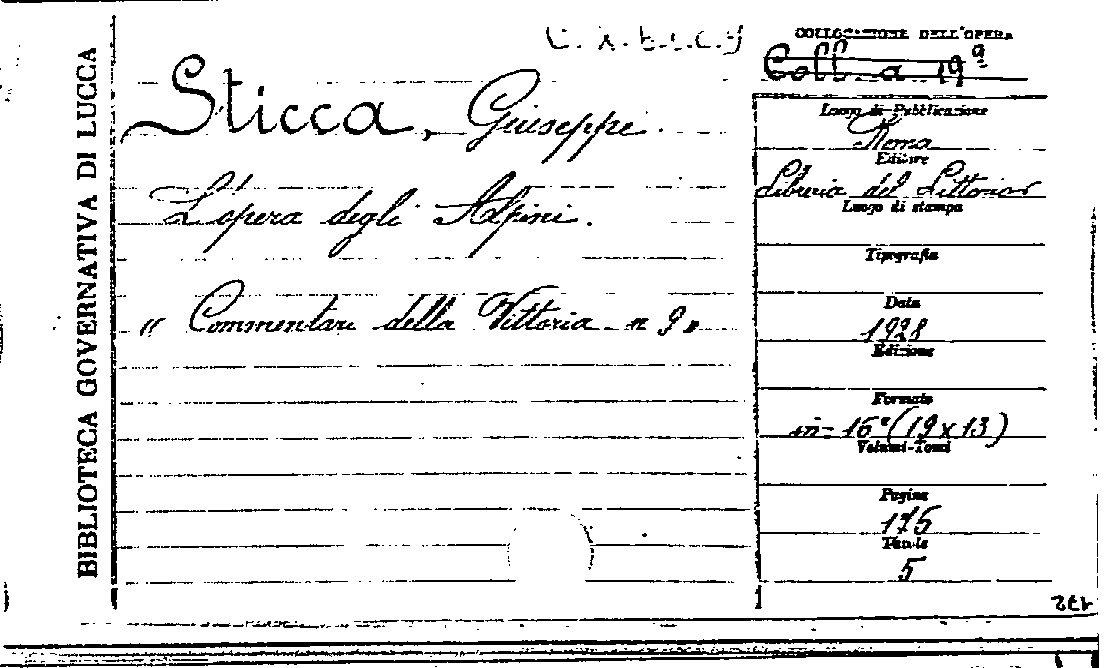 BIBLIOTECA GOVERNATIVA DI LUCCA
COLLOCAZIONE DELL'OPERA
Coll. a 19ª
Sticca, Giuseppe.
L'opera degli Alpini.
"Commentari della Vittoria n 9"
Luogo di Pubblicazione
Roma
Editore
Libreria del Littorio
Luogo di stampa
Tipografia
Data
1928
Edizione
Formato
in-16° (19x13)
Volumi-Tomi
Pagine
175
Tavole
5